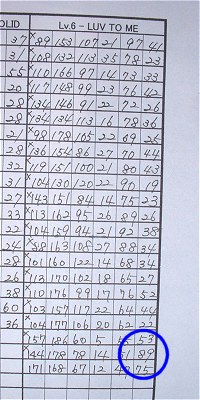 OLID Lv.6 - LUV TO ME
37 × 99 153 107 21 97 41
31 × 108 132 113 35 78 23
55 × 110 166 97 14 73 33
20 × 117 148 99 23 76 42
28 × 134 146 91 22 72 26
28 × 134 134 113 16 78 36
21 × 98 178 105 22 69
28 × 136 154 86 27 70 44
32 × 119 151 100 21 80 43
31 × 104 130 120 22 90 19
27 × 143 151 84 14 75 23
33 × 113 162 95 26 89 26
22 × 104 159 94 21 92 38
24 × 88 163 108 27 88 34
28 × 101 160 122 14 68 34
26 × 113 170 102 18 65 27
38 × 110 176 99 17 76 52
60 × 103 157 117 22 64 44
36 × 104 177 106 20 62 22
157 186 60 5 53
144 178 78 14 51 89
171 168 67 12 75